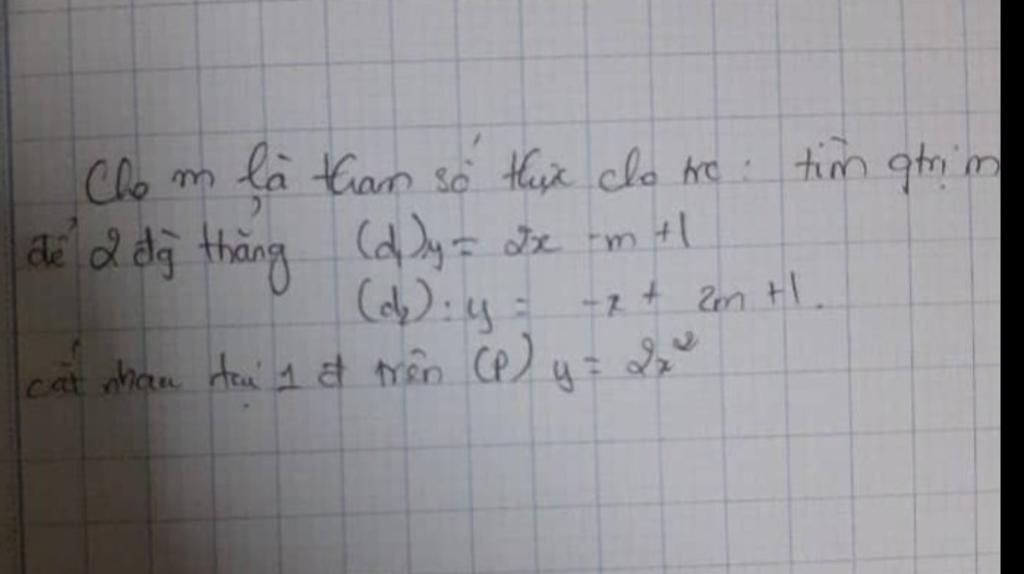 Cho m là tham số thực cho trc : tìm gtrị m
để 2 đg thẳng (d₁) y = 2x - m + 1
(d₂) : y = -x + 2m + 1.
cắt nhau tại 1 đ trên (P) y = 2x²